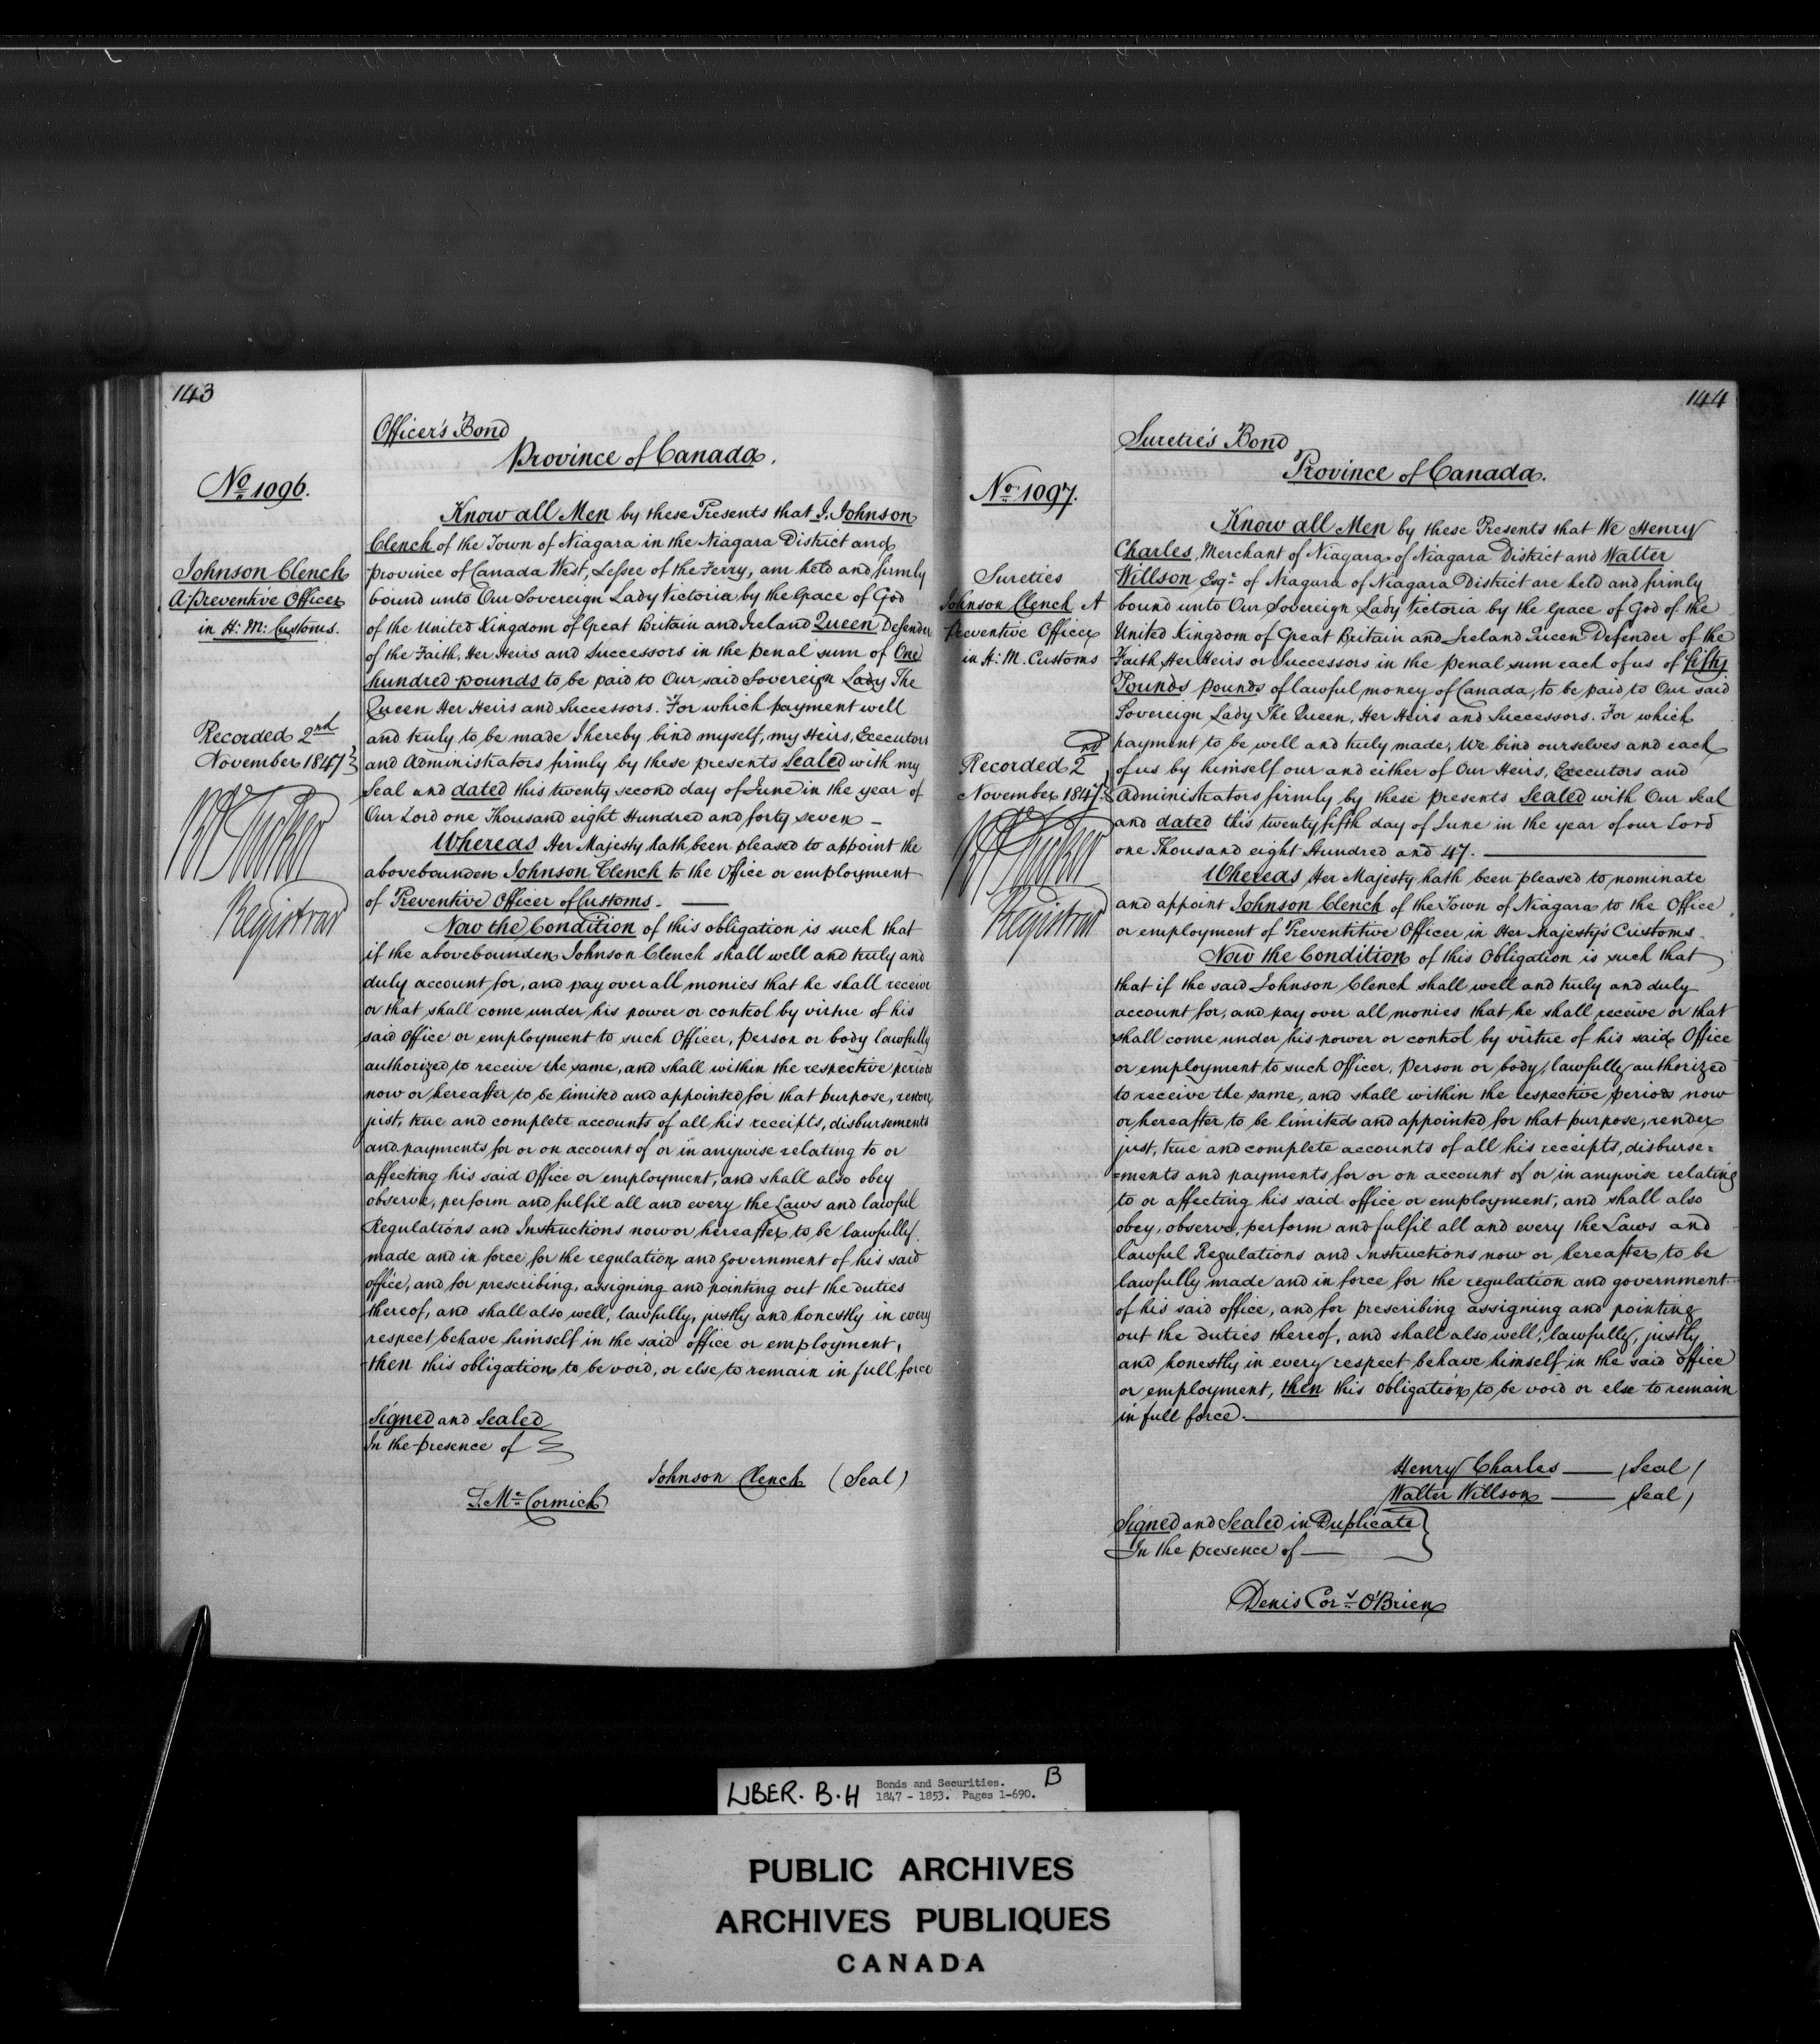 143
Officer's Bond
Province of Canada.
No 1096.
Know all Men by these Presents that I, Johnson
Clench of the Town of Niagara in the Niagara District and
province of Canada West, Lessee of the Ferry, am held and firmly
bound unto Our Sovereign Lady Victoria by the Grace of God
of the United Kingdom of Great Britain and Ireland Queen Defender
of the Faith, Her Heirs and Successors in the penal sum of One
hundred pounds to be paid to Our said Sovereign Lady The
Queen Her Heirs and Successors. For which payment well
and truly to be made I hereby bind myself, my Heirs, Executors
and Administrators firmly by these presents Sealed with my
Seal and dated this twenty second day of June in the year of
Our Lord one Thousand eight Hundred and forty seven –
Whereas Her Majesty hath been pleased to appoint the
abovebounden Johnson Clench to the Office or employment
of Preventive Officer of Customs. —
Now the Condition of this obligation is such that
if the abovebounden Johnson Clench shall well and truly and
duly account for, and pay over all monies that he shall receive
or that shall come under his power or control by virtue of his
said office or employment to such Officer, Person or body lawfully
authorized to receive the same, and shall within the respective periods
now or hereafter to be limited and appointed for that purpose, render
just, true and complete accounts of all his receipts, disbursements
and payments for or on account of or in anywise relating to or
affecting his said Office or employment, and shall also obey
observe, perform and fulfil all and every the Laws and lawful
Regulations and Instructions now or hereafter to be lawfully
made and in force for the regulation and government of his said
office, and for prescribing, assigning and pointing out the duties
thereof, and shall also well, lawfully, justly and honestly in every
respect behave himself in the said office or employment,
then this obligation to be void, or else to remain in full force
Signed and Sealed
In the presence of
Johnson Clench (Seal)
T. McCormick
Johnson Clench
A. Preventive Officer
in H: M: Customs.
Recorded 2nd
November 1847
Registrar
144
Suretie's Bond
Province of Canada.
No 1097.
Know all Men by these Presents that We Henry
Charles, Merchant of Niagara of Niagara District and Walter
Willson Esqr of Niagara of Niagara District are held and firmly
bound unto Our Sovereign Lady Victoria by the Grace of God of the
United Kingdom of Great Britain and Ireland Queen Defender of the
Faith, Her Heirs or Successors in the penal sum each of us of fifty
Pounds pounds of lawful money of Canada, to be paid to Our said
Sovereign Lady The Queen, Her Heirs and Successors. For which
payment to be well and truly made, We bind ourselves and each
of us by himself our and either of Our Heirs, Executors and
Administrators firmly by these presents Sealed with Our Seal
and dated this twenty fifth day of June in the year of our Lord
one Thousand eight Hundred and 47. —
Whereas Her Majesty hath been pleased to nominate
and appoint Johnson Clench of the Town of Niagara to the Office
or employment of Preventitive Officer in Her Majesty's Customs.
Now the Condition of this Obligation is such that
that if the said Johnson Clench shall well and truly and duly
account for, and pay over all monies that he shall receive or that
shall come under his power or control by virtue of his said Office
or employment to such Officer, Person or body, lawfully authorized
to receive the same, and shall within the respective periods now
or hereafter to be limited and appointed for that purpose, render
just, true and complete accounts of all his receipts, disburse=
=ments and payments for or on account of or in anywise relating
to or affecting his said office or employment, and shall also
obey, observe, perform and fulfil all and every the Laws and
lawful Regulations and Instructions now or hereafter to be
lawfully made and in force for the regulation and government
of his said office, and for prescribing assigning and pointing
out the duties thereof, and shall also well, lawfully, justly
and honestly in every respect behave himself in the said office
or employment, then this obligation to be void or else to remain
in full force. —
Henry Charles — (Seal)
Walter Willson — (Seal)
Signed and Sealed in Duplicate
In the presence of —
Denis Cors O'Brien
Sureties
Johnson Clench A
Preventive Officer
in H. M. Customs
Recorded 2nd
November 1847
Registrar
LIBER. B.H
Bonds and Securities.
1847 - 1853. Pages 1-690.
B
PUBLIC ARCHIVES
ARCHIVES PUBLIQUES
CANADA